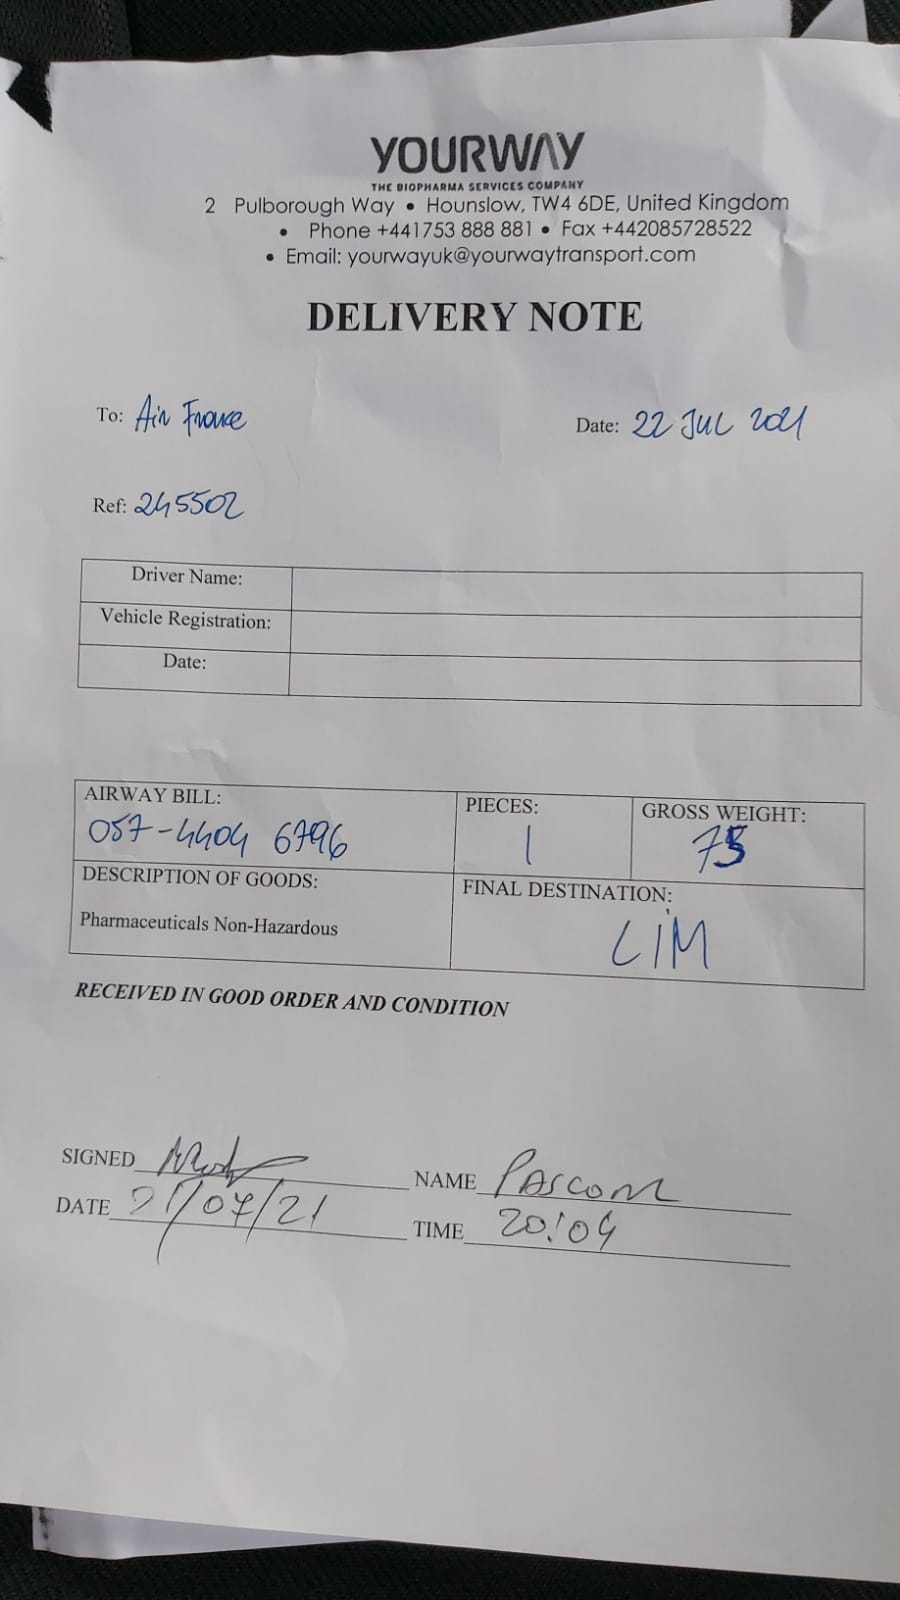 YOURWAY
THE BIOPHARMA SERVICES COMPANY
2 Pulborough Way • Hounslow, TW4 6DE, United Kingdom
• Phone +441753 888 881 • Fax +442085728522
• Email: yourwayuk@yourwaytransport.com
DELIVERY NOTE
To: Air France
Date: 22 JUL 2021
Ref: 245502
Driver Name:
Vehicle Registration:
Date:
AIRWAY BILL:
057-4404 6796
PIECES:
1
GROSS WEIGHT:
75
DESCRIPTION OF GOODS:
Pharmaceuticals Non-Hazardous
FINAL DESTINATION:
LIM
RECEIVED IN GOOD ORDER AND CONDITION
SIGNED
NAME
DATE 21/07/21
TIME 20:04